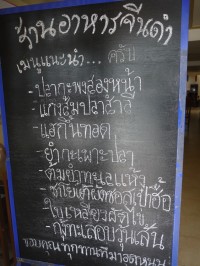 ร้านอาหารจีนดำ
เมนูแนะนำ... ครับ
- ปลากะพงสองหน้า
- แกงส้มปลา
- แฮ่กึ๊นทอด
- ยำกะเพาะปลา
- ต้มขาหมู
- ใบเหลียงผัดไข่
- กุ้งกะสอบวุ้นเส้น
ขอบคุณทุกท่านที่มาอุดหนุน